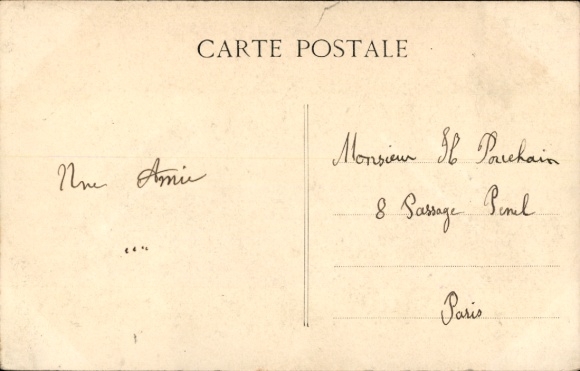 CARTE POSTALE
Une Amie
....
Monsieur H Pouchain
8 Passage Penel
Paris